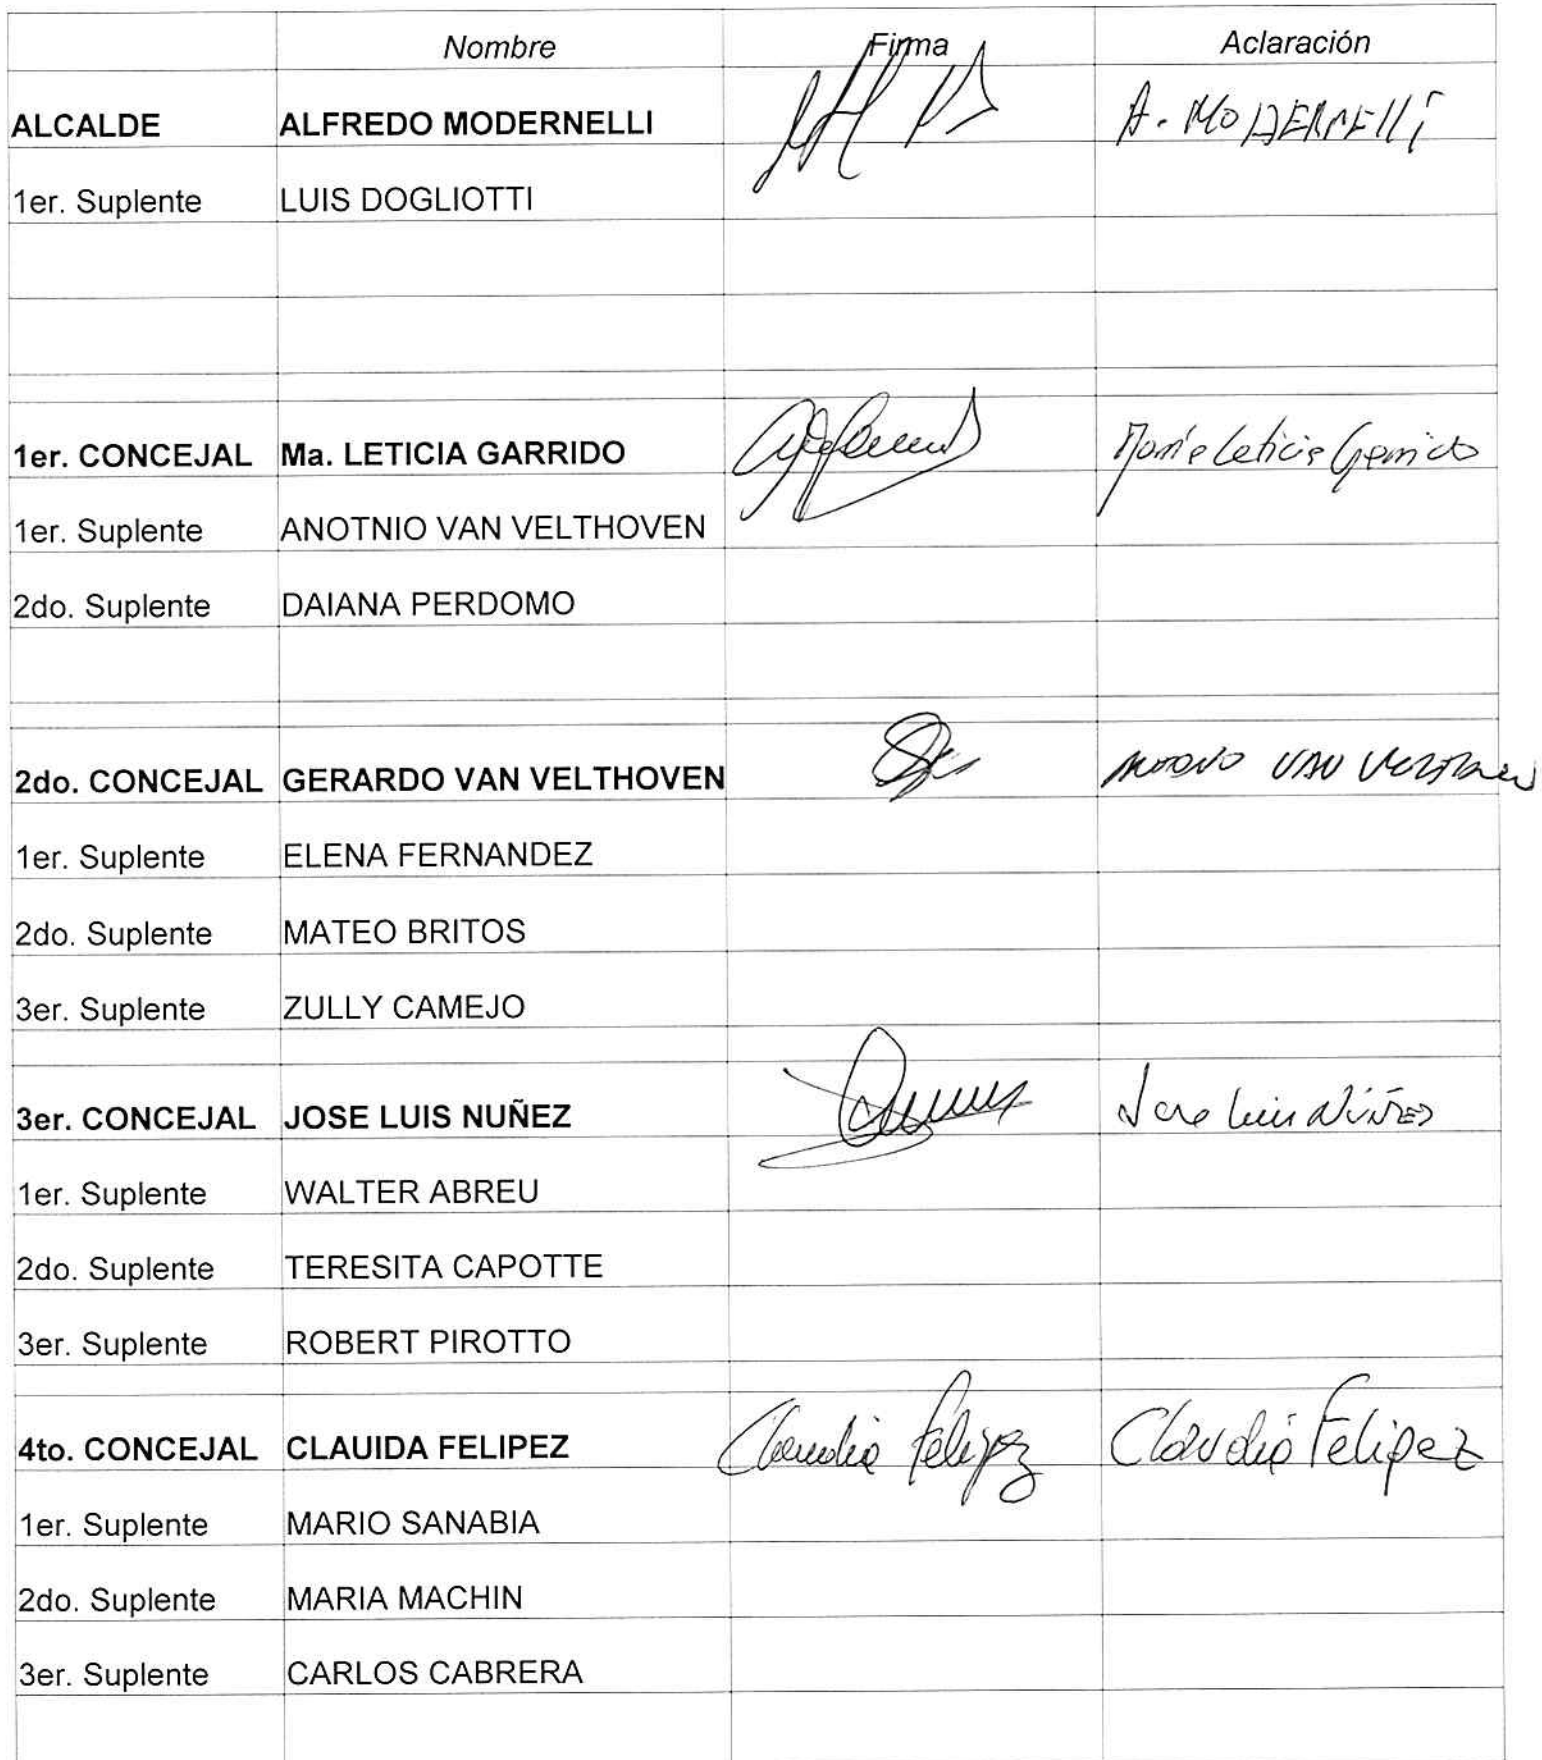 Nombre Firma Aclaración
ALCALDE ALFREDO MODERNELLI A. MODERNELLI
1er. Suplente LUIS DOGLIOTTI
1er. CONCEJAL Ma. LETICIA GARRIDO María Leticia Garrido
1er. Suplente ANOTNIO VAN VELTHOVEN
2do. Suplente DAIANA PERDOMO
2do. CONCEJAL GERARDO VAN VELTHOVEN VAN VELTHOVEN
1er. Suplente ELENA FERNANDEZ
2do. Suplente MATEO BRITOS
3er. Suplente ZULLY CAMEJO
3er. CONCEJAL JOSE LUIS NUÑEZ Jose Luis Núñez
1er. Suplente WALTER ABREU
2do. Suplente TERESITA CAPOTTE
3er. Suplente ROBERT PIROTTO
4to. CONCEJAL CLAUIDA FELIPEZ Claudia Felipez Claudia Felipez
1er. Suplente MARIO SANABIA
2do. Suplente MARIA MACHIN
3er. Suplente CARLOS CABRERA